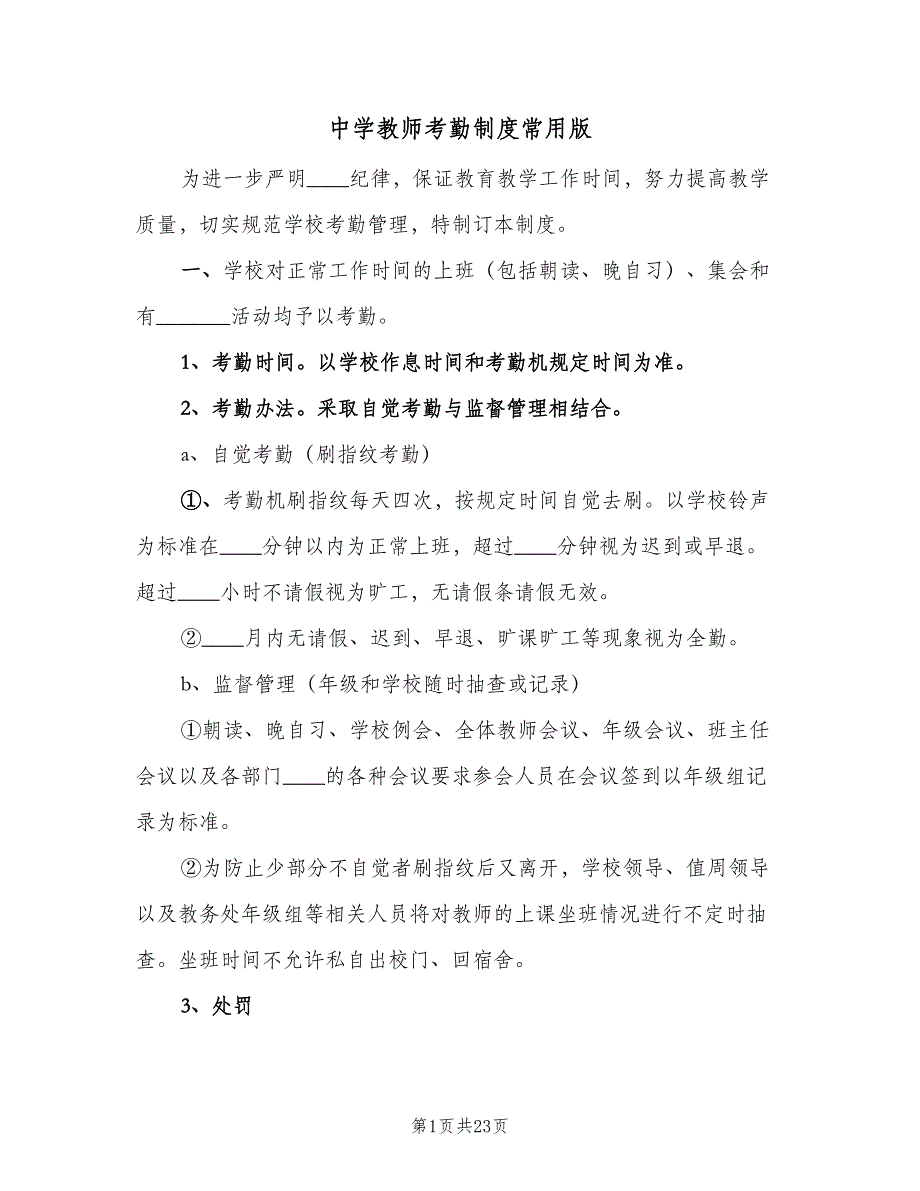 中学教师考勤制度常用版
为进一步严明____纪律，保证教育教学工作时间，努力提高教学
质量，切实规范学校考勤管理，特制订本制度。
一、学校对正常工作时间的上班（包括朝读、晚自习）、集会和
有_______活动均予以考勤。
1、考勤时间。以学校作息时间和考勤机规定时间为准。
2、考勤办法。采取自觉考勤与监督管理相结合。
a、自觉考勤（刷指纹考勤）
①、考勤机刷指纹每天四次，按规定时间自觉去刷。以学校铃声
为标准在____分钟以内为正常上班，超过____分钟视为迟到或早退。
超过____小时不请假视为旷工，无请假条请假无效。
②____月内无请假、迟到、早退、旷课旷工等现象视为全勤。
b、监督管理（年级和学校随时抽查或记录）
①朝读、晚自习、学校例会、全体教师会议、年级会议、班主任
会议以及各部门____的各种会议要求参会人员在会议签到以年级组记
录为标准。
②为防止少部分不自觉者刷指纹后又离开，学校领导、值周领导
以及教务处年级组等相关人员将对教师的上课坐班情况进行不定时抽
查。坐班时间不允许私自出校门、回宿舍。
3、处罚
第1页共23页